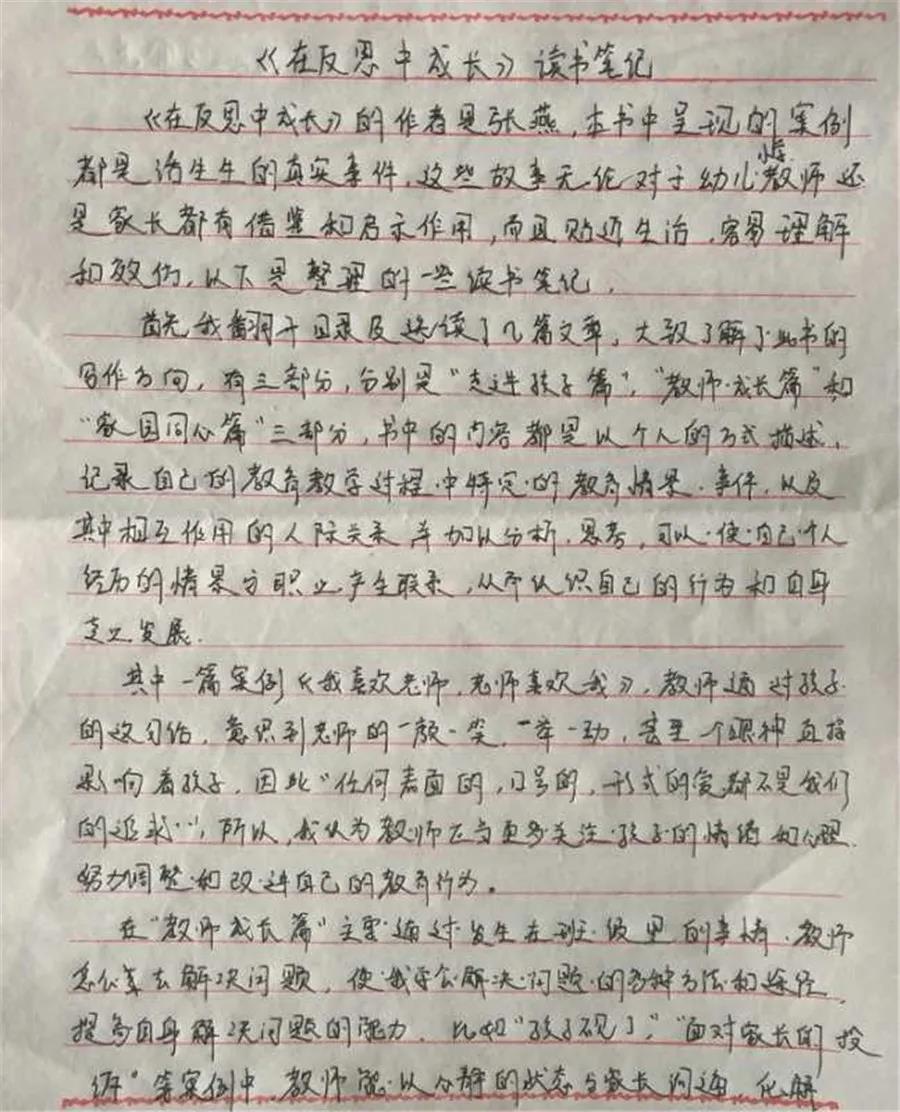 《在反思中成长》读书笔记
《在反思中成长》的作者是张燕，本书中呈现的案例
都是活生生的真实事件，这些故事无论对于幼儿教师还
是家长都有借鉴和启示作用，而且贴近生活，容易理解
和效仿，以下是整理的一些读书笔记．
首先我翻开目录及选读了几篇文章，大致了解了此书的
写作方向，有三部分，分别是“走进孩子篇”，“教师成长篇”和
“家园同心篇”三部分，书中的内容都是以个人的方式描述，
记录自己的教育教学过程中特定的教育情景、事件，以及
其中相互作用的人际关系并加以分析、思考，可以使自己个人
经历的情景与职业产生联系，从而认识自己的行为和自身
专业发展．
其中一篇案例《我喜欢老师，老师喜欢我》，教师通过孩子
的这句话，意识到老师的一颜一笑，一举一动，甚至一个眼神直接
影响着孩子，因此“任何表面的，口号的，形式的爱都不是我们
的追求…”，所以，我认为教师应当更多关注孩子的情绪和心理，
努力调整和改进自己的教育行为。
在“教师成长篇”主要通过发生在班级里的事情，教师
怎么样去解决问题，使我学会解决问题的各种方法和途径，
提高自身解决问题的能力．比如“孩子砚了”，“面对家长的投
诉”等案例中，教师能以冷静的状态与家长沟通，化解